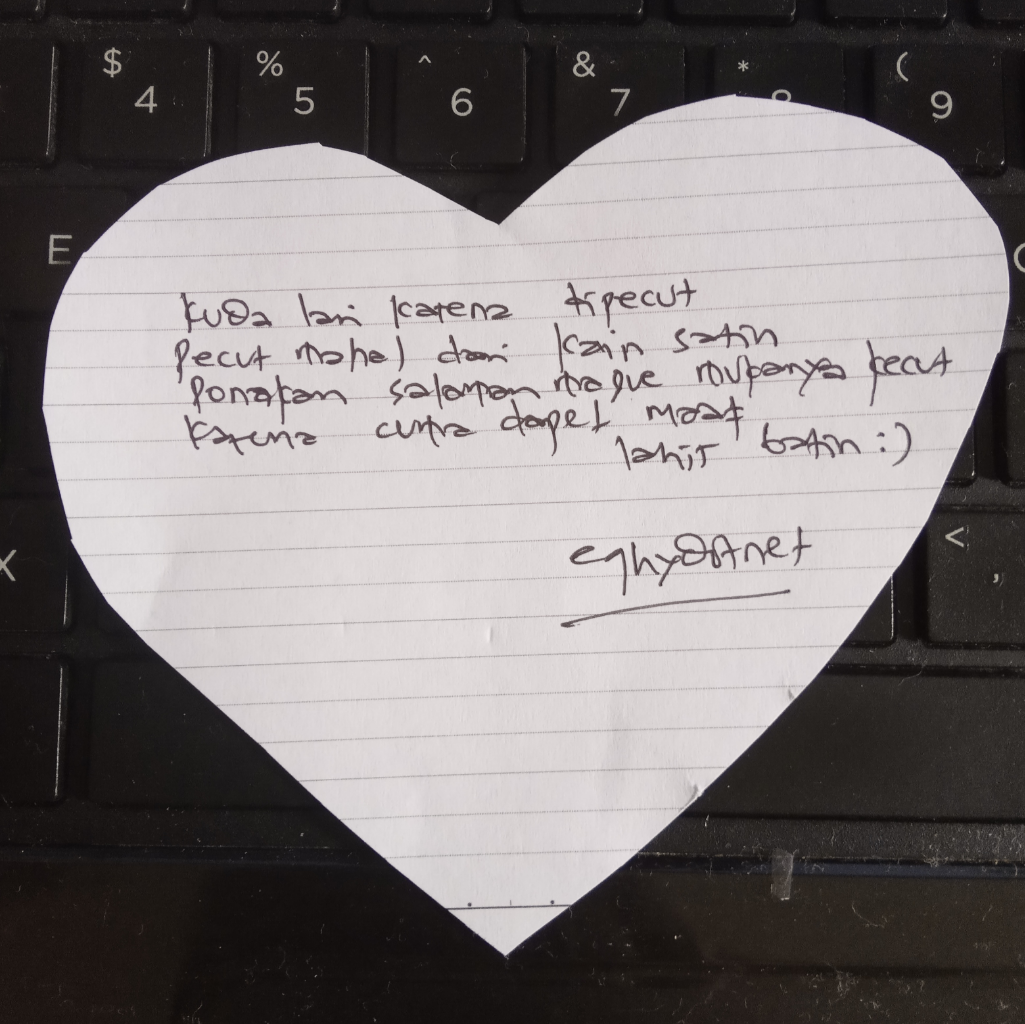 $ % ^ & * (
4 5 6 7 8 9
E
kuda lari karena dipecut
Pecut mahal dari kain satin
Ponakan salaman mague mukanya kecut
Karena cuma dapet maaf
lahir batin :)
X
eqhydotnet
<
,